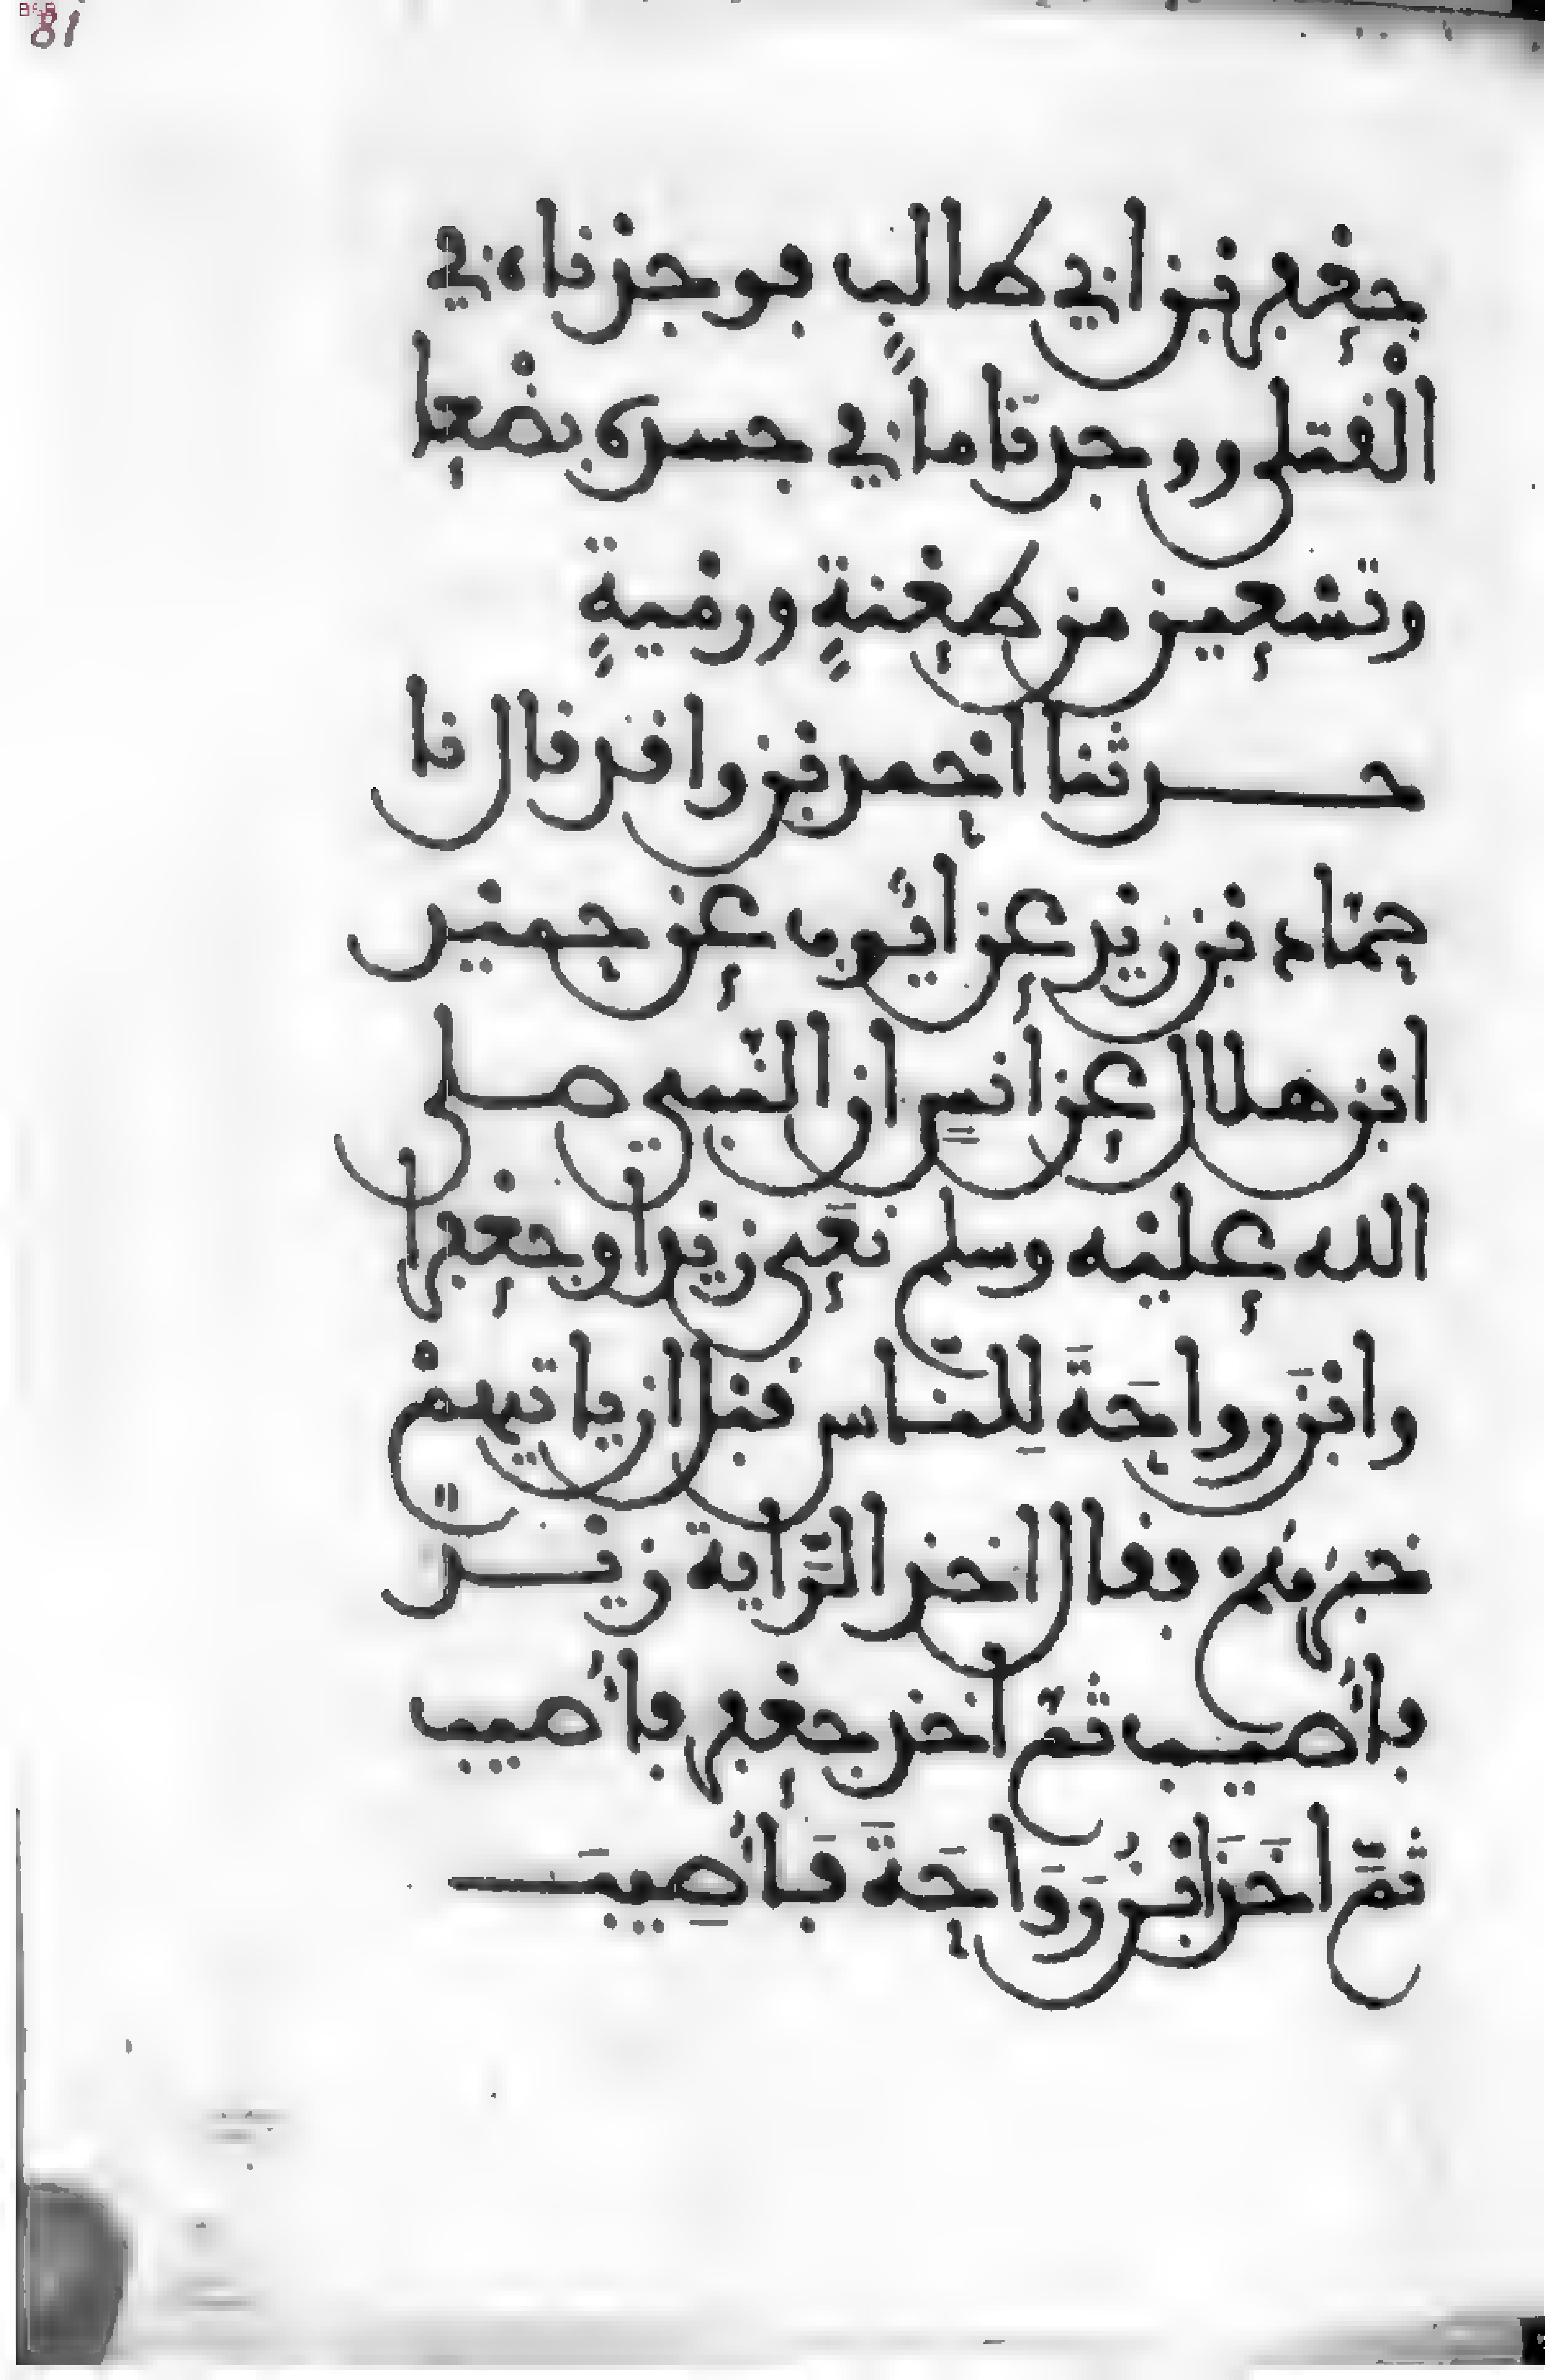 81
جعفر بن ابي طالبٍ فوجدناه في
الْقتلى ووجدنَا ما في جسده بضْعا
وتسْعين من طعْنةٍ ورمْيةٍ
حدثنا احْمد بن واقد قال نا
حمّاد بن زيْد عن ايُّوب عن حميْد
ابْن هلال عن انسٍ ان النّبي صلى
الله عليْه وسلم نعَى زيْدا وجعْفرا
وابْنَ رواحَةَ لِلنَّاس قبْل ان ياتيهمْ
خبرُهُمْ فقال اخذ الرَّاية زيْد
فأُصيب ثمّ اخذ جعْفر فأُصيب
ثمَّ اخَذَ ابْنُ رَوَاحَةَ فَأُصِيبَ